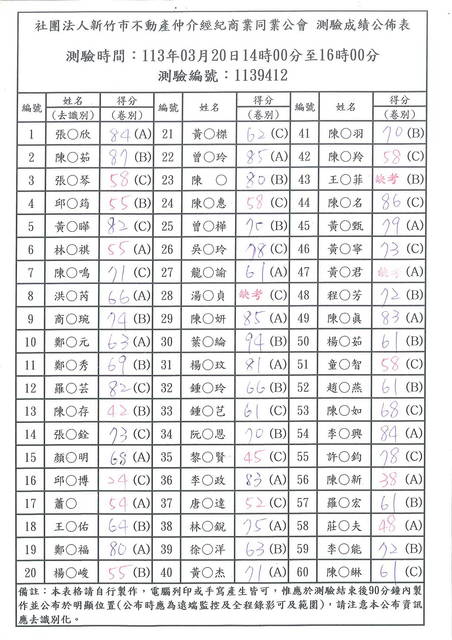 社團法人新竹市不動產仲介經紀商業同業公會 測驗成績公佈表
測驗時間：113年03月20日14時00分至16時00分
測驗編號：1139412
編號 姓名(去識別) 得分(卷別) 編號 姓名(去識別) 得分(卷別) 編號 姓名(去識別) 得分(卷別)
1 張○欣 84 (A) 21 黃○傑 62 (C) 41 陳○羽 70 (B)
2 陳○茹 87 (B) 22 曾○玲 85 (A) 42 陳○羚 58 (C)
3 張○琴 58 (C) 23 陳 ○ 80 (B) 43 王○菲 缺考 (B)
4 邱○筠 55 (B) 24 陳○惠 58 (C) 44 陳○名 86 (C)
5 黃○曄 82 (C) 25 曾○樺 70 (B) 45 黃○甄 79 (A)
6 林○祺 55 (A) 26 吳○玲 78 (C) 46 黃○寧 73 (C)
7 陳○鳴 71 (C) 27 龍○諭 61 (A) 47 黃○君 缺考 (A)
8 洪○芮 66 (A) 28 湯○貞 缺考 (C) 48 程○芳 72 (B)
9 商○琬 74 (B) 29 陳○妍 85 (A) 49 陳○真 83 (A)
10 鄭○元 63 (A) 30 葉○綸 94 (B) 50 楊○茹 61 (B)
11 鄭○秀 69 (B) 31 楊○玟 81 (A) 51 童○智 58 (C)
12 羅○芸 82 (C) 32 鍾○玲 66 (B) 52 趙○燕 61 (B)
13 陳○存 42 (B) 33 鍾○艺 61 (C) 53 陳○如 68 (C)
14 張○銓 73 (C) 34 阮○恩 70 (B) 54 李○興 84 (A)
15 顏○明 68 (A) 35 黎○賢 45 (C) 55 許○鈞 78 (C)
16 邱○博 24 (C) 36 李○政 83 (A) 56 陳○新 38 (A)
17 蕭○ 54 (A) 37 唐○達 52 (C) 57 羅○宏 61 (B)
18 王○佑 64 (B) 38 林○銳 75 (A) 58 莊○夫 48 (A)
19 鄭○福 80 (A) 39 徐○洋 63 (B) 59 李○能 72 (B)
20 楊○峻 55 (B) 40 黃○杰 71 (A) 60 陳○綝 61 (C)
備註：本表格請自行製作，電腦列印或手寫產生皆可，惟應於測驗結束後90分鐘內製
作並公布於明顯位置(公布時應為遠端監控及全程錄影可及範圍)，請注意本公布資訊
應去識別化。